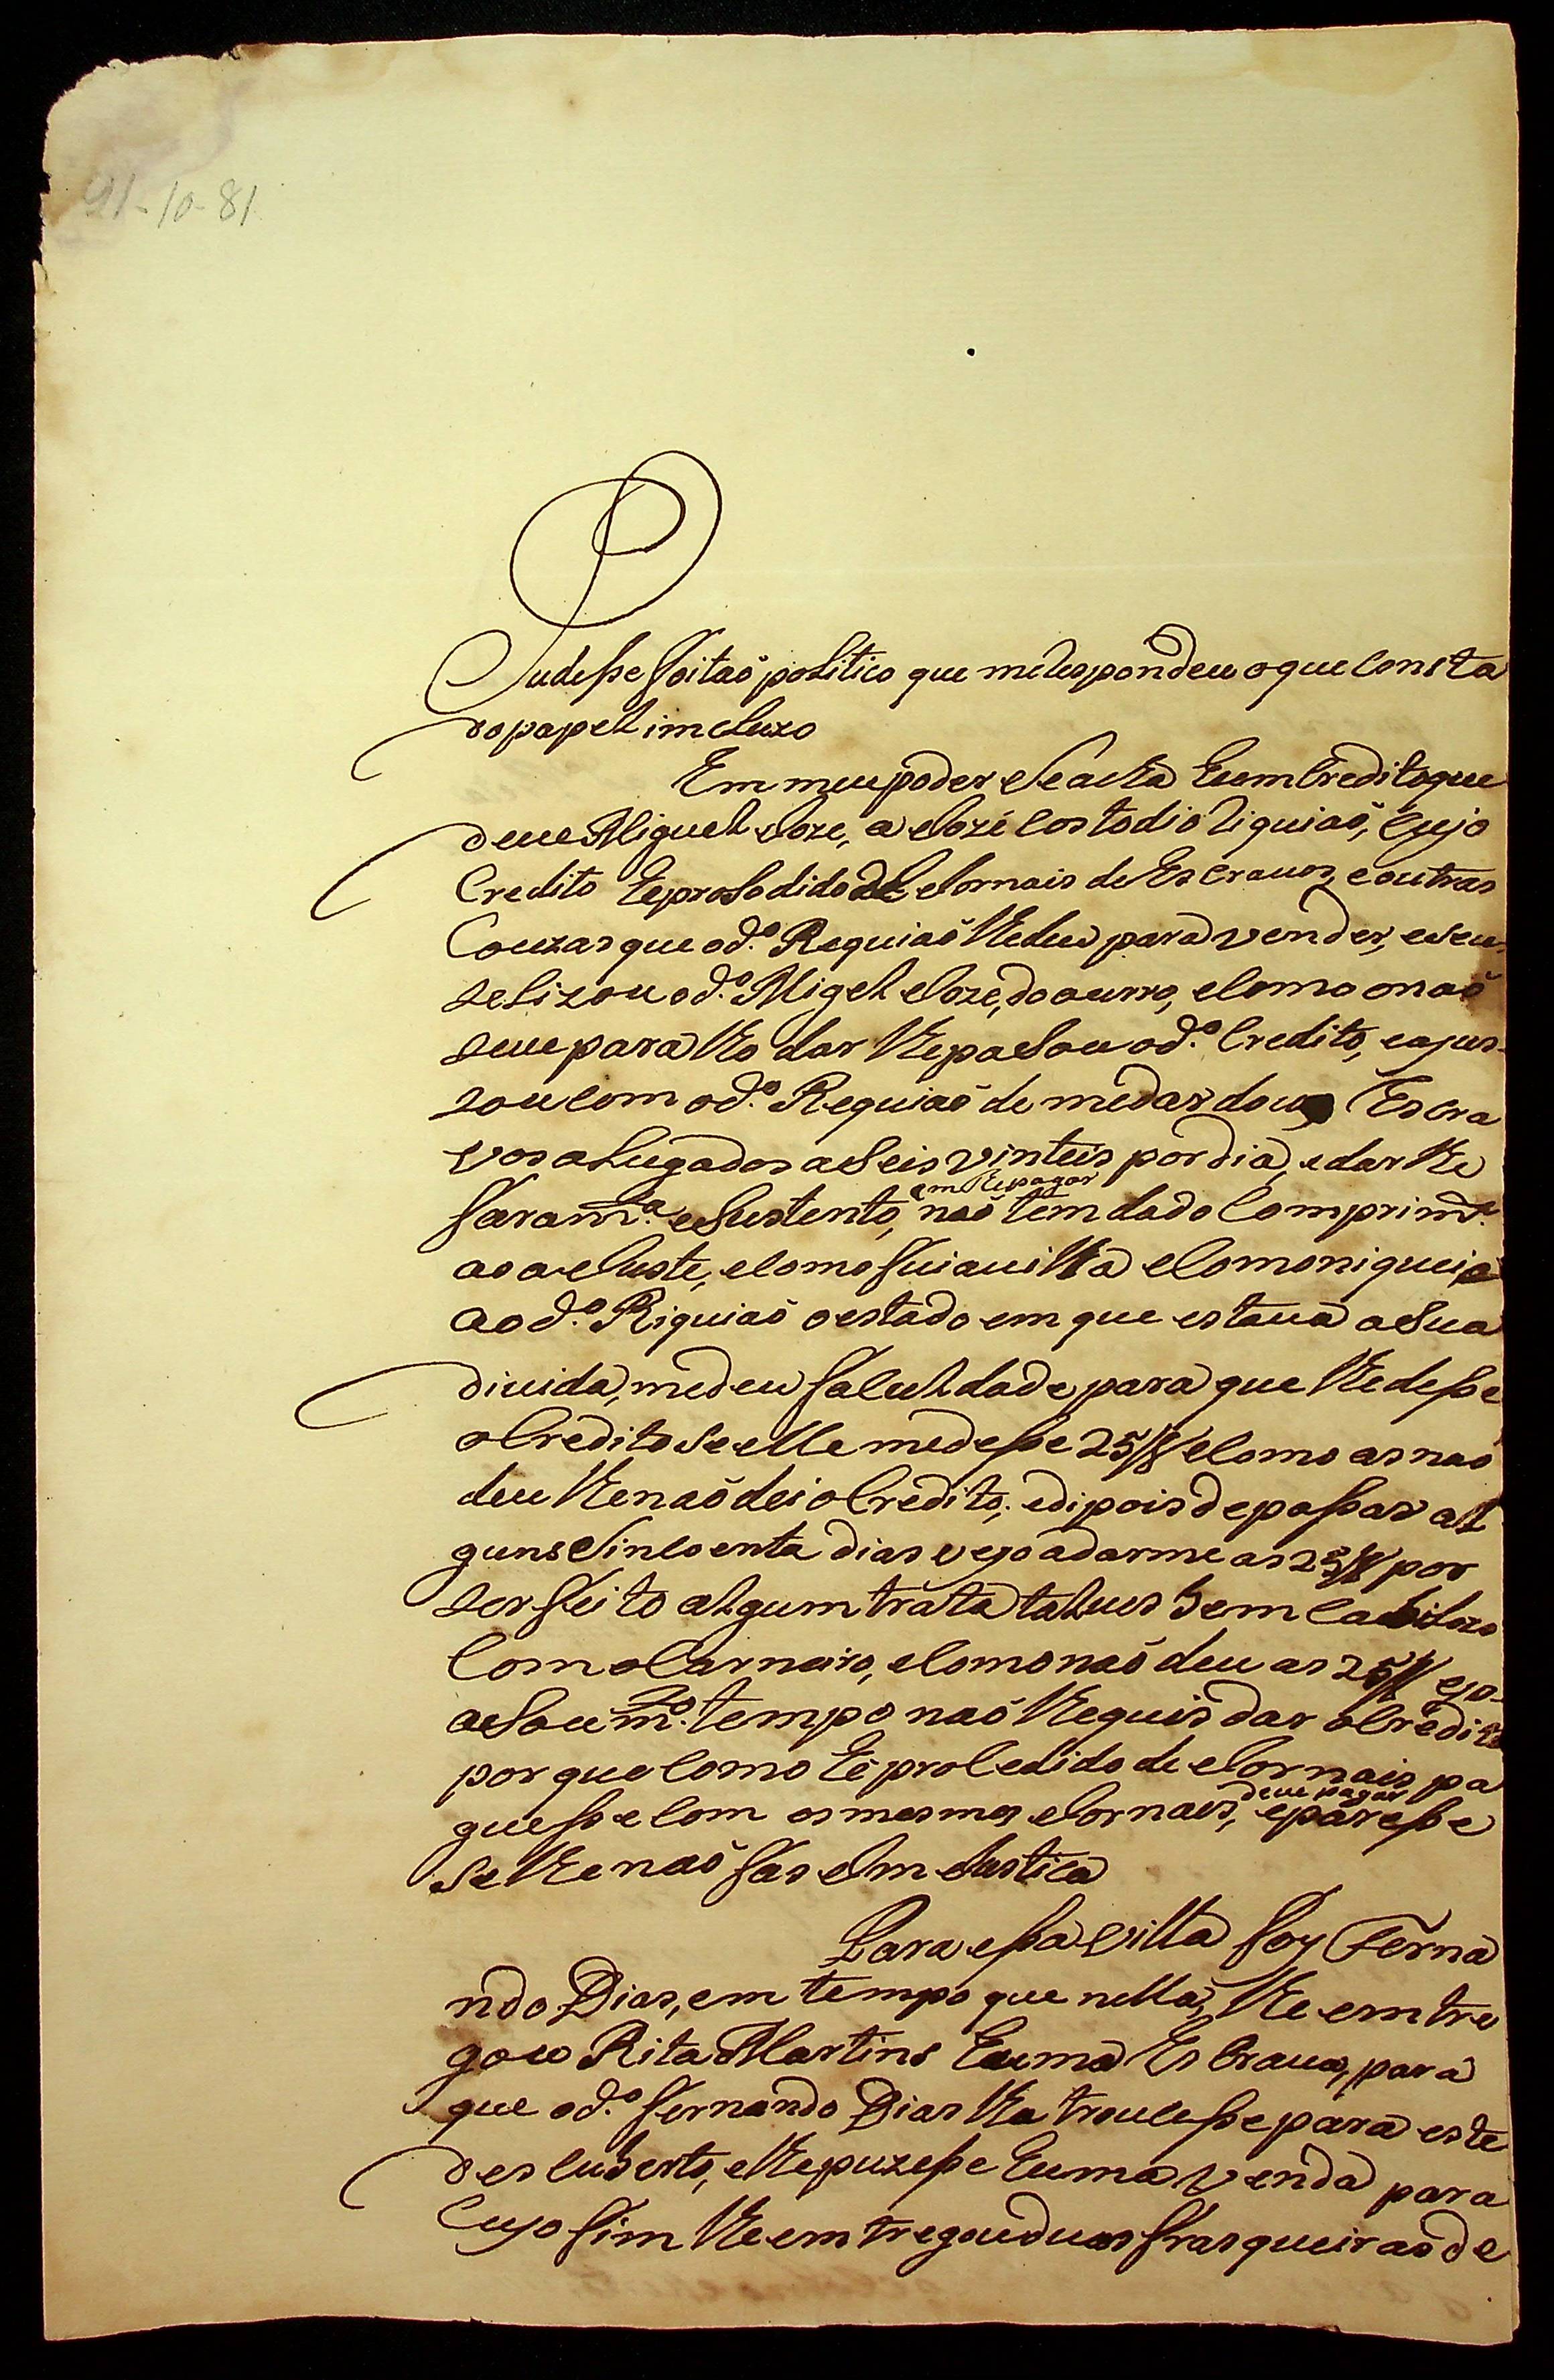 21-10-81
P
Judesse foi taõ politico que me Respondeu o que Consta
do papel imcluzo
Em meu poder se acha hum Credito que
deve Miguel Joze, a Jozé Costodio Riquiaõ, Cujo
Credito he prosodido de Jornais de Escravos, e outras
Couzas que o d.º Requiaõ lhe deu para vender, e seu
telizou o d.º Migel Joze, do ourro, e Como o naõ
teve para lho dar lhe pasou o d.º Credito, e ajus-
tou Com o d.º Requiaõ de me dar dous Escra
vos alugados a Seis vinteis por dia, e dar lhe
em lhe pagar
faram.ª e Sustento, naõ tem dado Comprim.to
ao ajuste, e Como fui a villa e Comoniquei
ao d.º Riquiaõ o estado em que estava a Sua
divida, me deu faculdade para que lhe desse
o Credito Se elle me desse 25/8 e Como as naõ
deu lhe naõ dei o Credito, e dipois de passar al
guns Sincoenta dias veyo a dar me as 25/8 por
ter feito algum trata talves bem Cabilozo
Com o Carneiro, e Como naõ deu as 25/8 e pa-
sou m.to tempo naõ lhe quis dar o Credito
por que Como he proCedido de Jornais pa
deve pagar
guesse Com os mesmos Jornais, e paresse
se lhe naõ fas Im Justica
Para essa villa foy Ferna
ndo Dias, em tempo que nella, lhe emtre
gou Rita Martins huma Escrava, para
que o d.º Fernando Dias lha trouCesse para este
desCuberto, e lhe puzesse huma venda para
Cujo fim lhe emtregou duas frasqueiras de